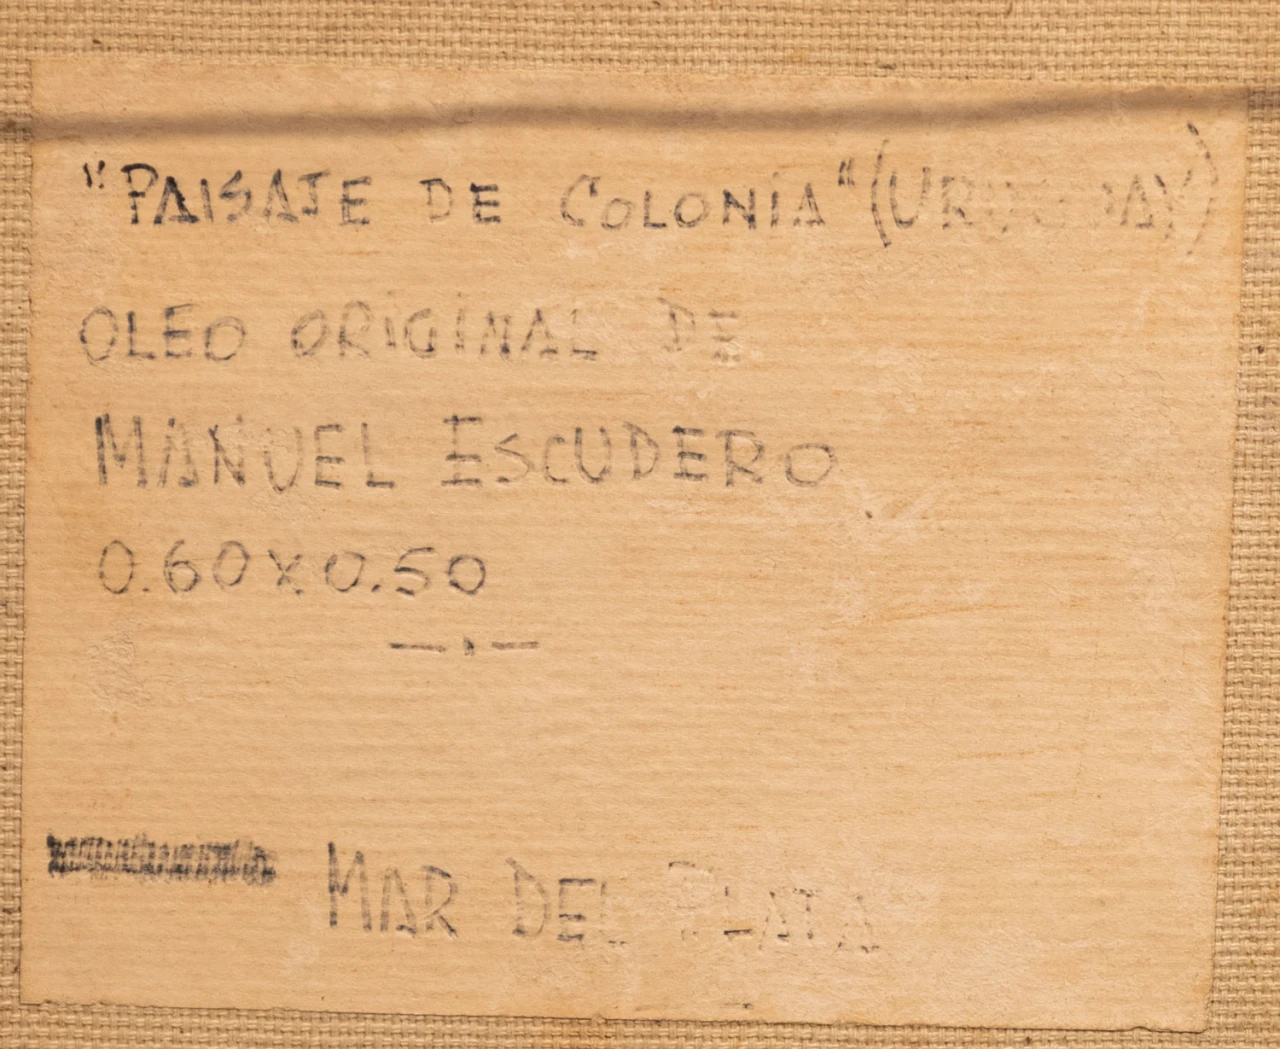 "PAISAJE DE COLONIA" (URUGUAY)
OLEO ORIGINAL DE
MANUEL ESCUDERO
0.60x0.50
MAR DEL PLATA